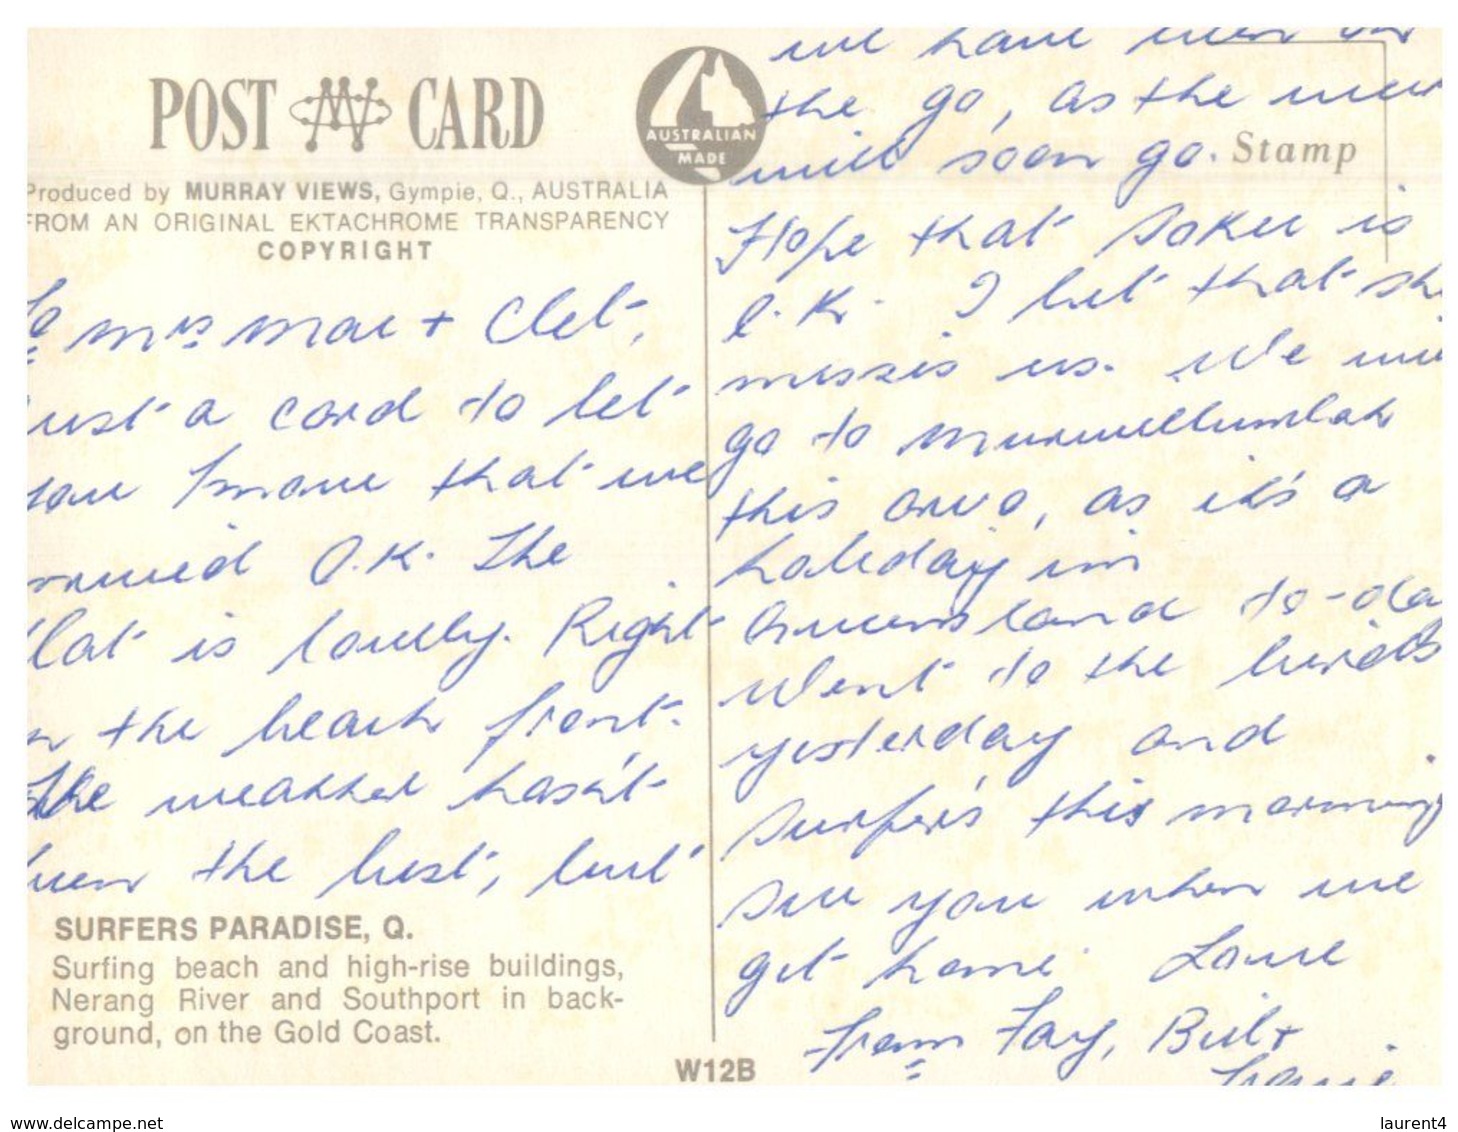 POST CARD
AUSTRALIAN
MADE
Produced by MURRAY VIEWS, Gympie, Q., AUSTRALIA
FROM AN ORIGINAL EKTACHROME TRANSPARENCY
COPYRIGHT
To Mrs Mac + Clet,
Just a card to let
you know that we
arrived O.K. The
flat is lovely. Right
on the beach front.
The weather hasn't
been the best, but
SURFERS PARADISE, Q.
Surfing beach and high-rise buildings,
Nerang River and Southport in back-
ground, on the Gold Coast.
W12B
we have been on
the go, as the
will soon go.
Stamp
Hope that is
O.K. I bet that she
misses us. We
go to Murwillumbah
this arvo, as it's a
holiday in
Queensland to-day
Went to the birds
yesterday and
Surfers this morning
see you when we
get home. Love
from Fay, Bill +
www.delcampe.net
laurent4